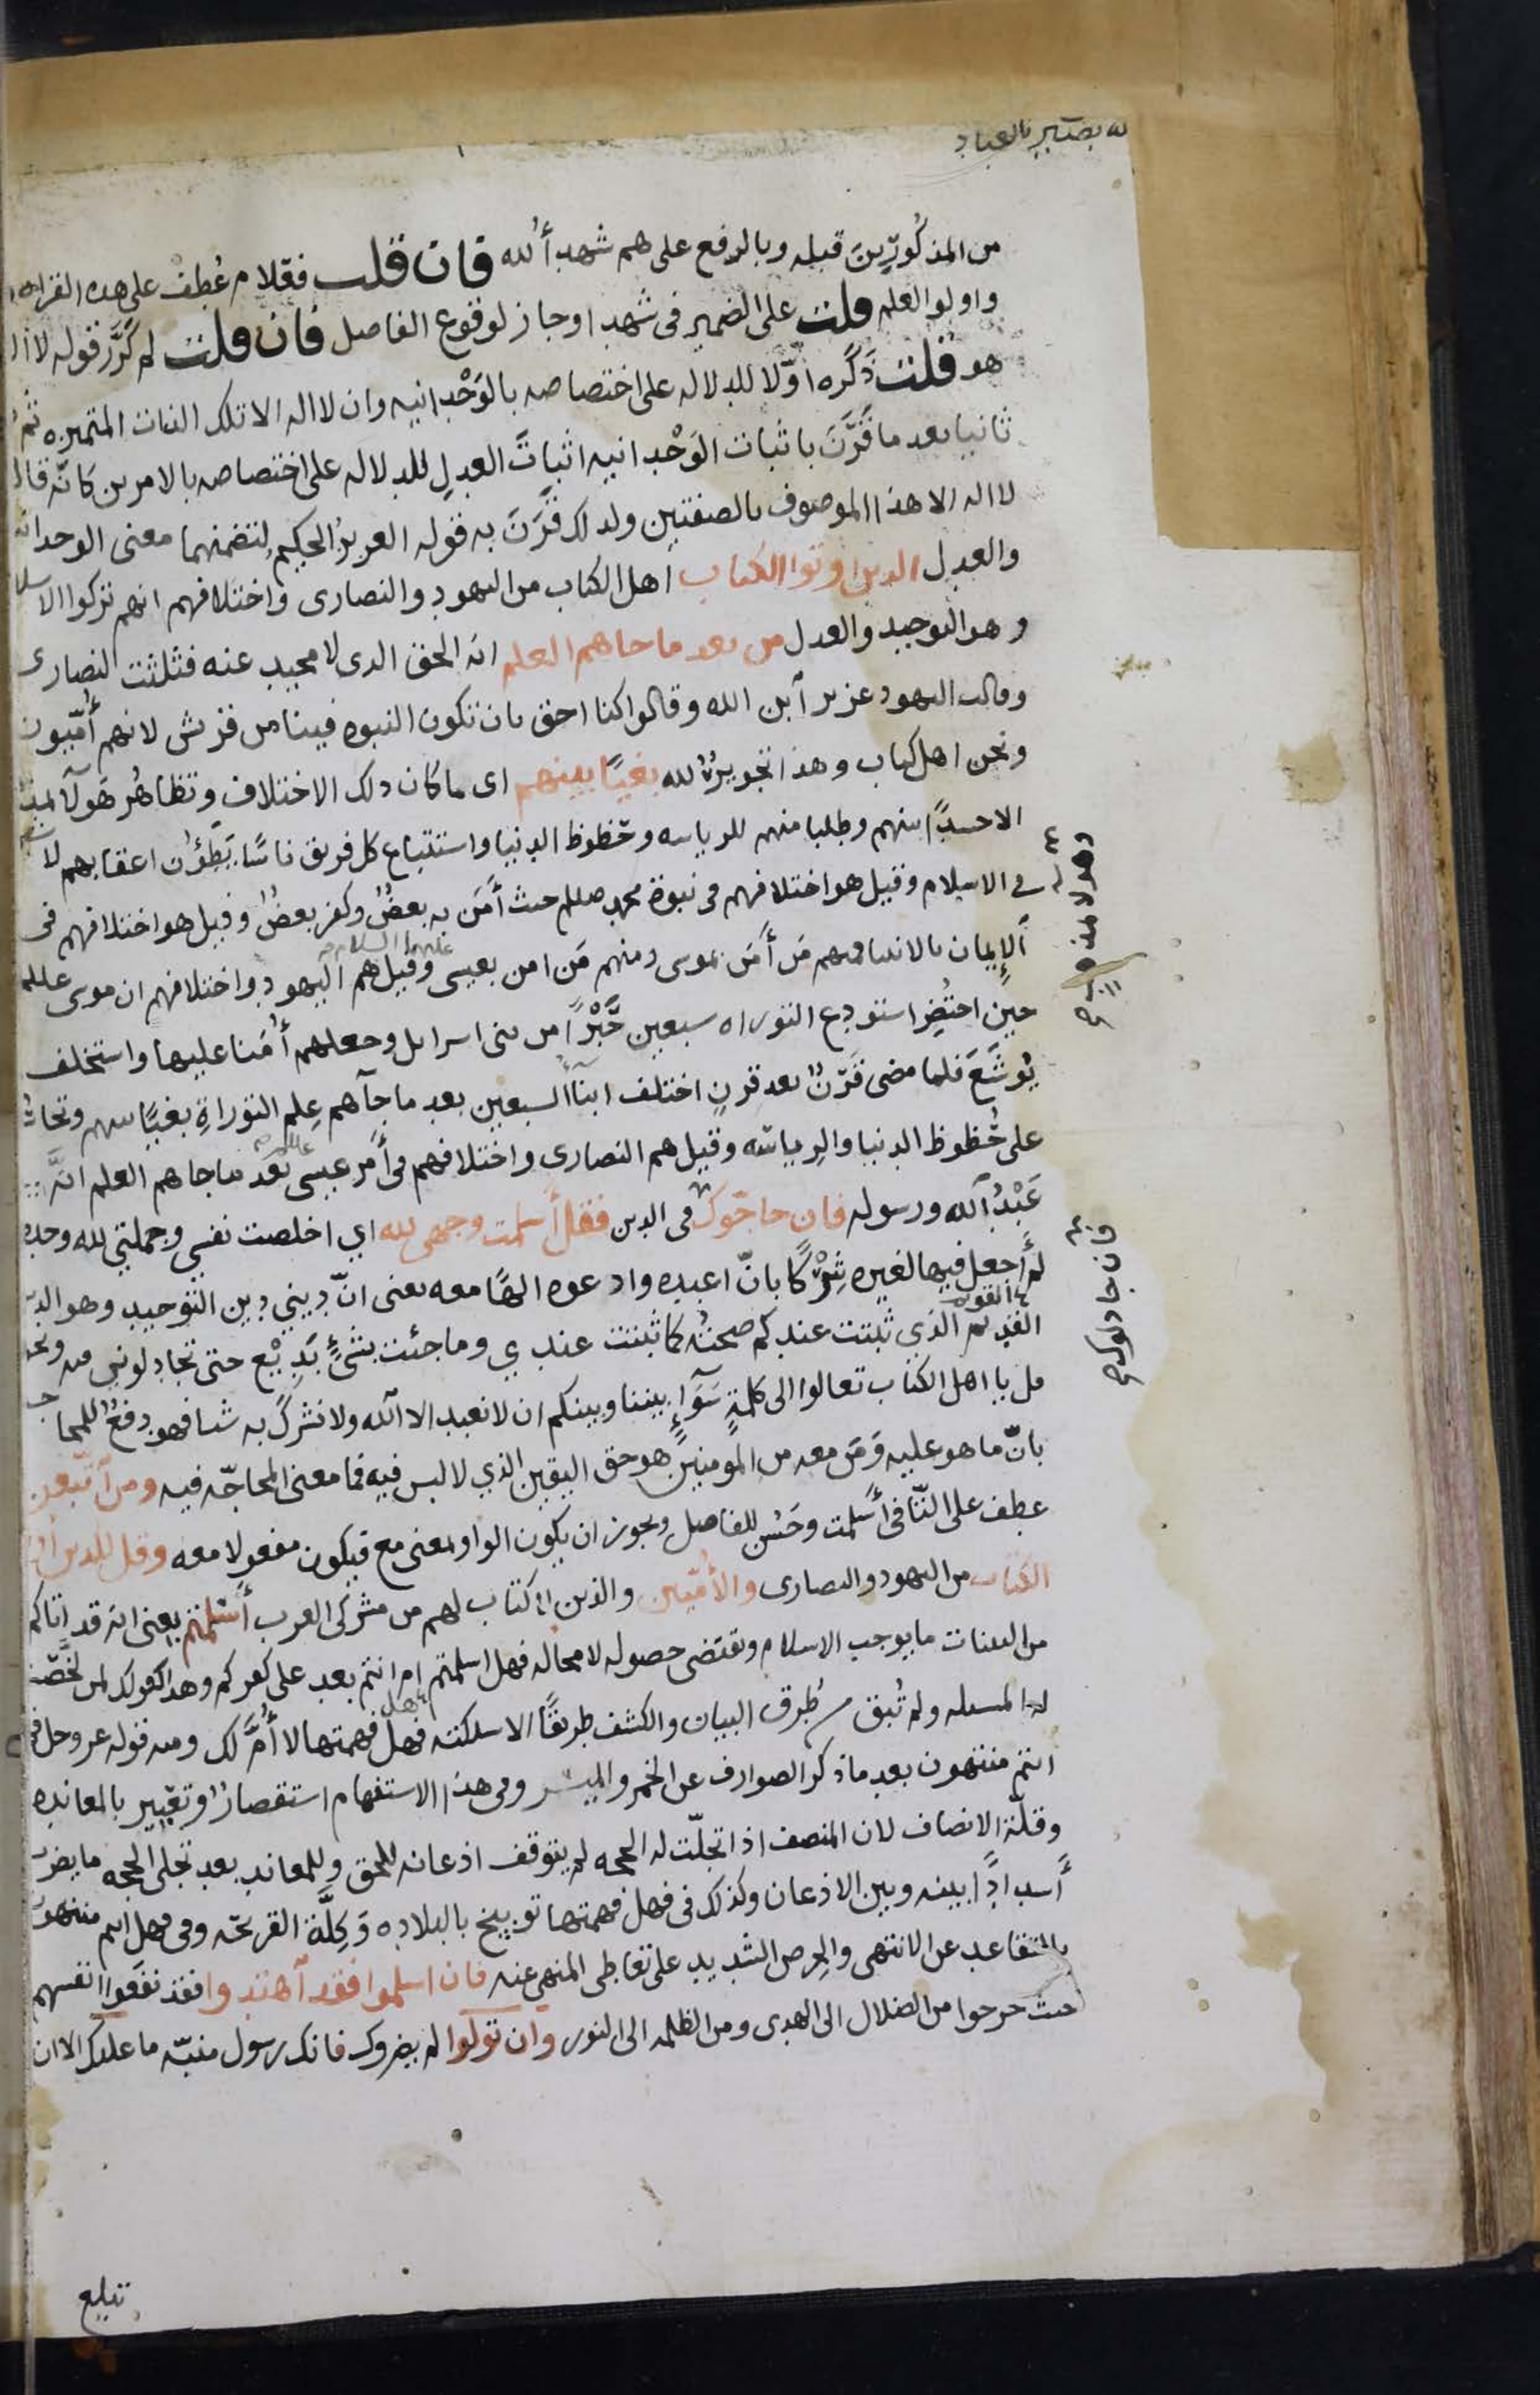 له بصير بالعباد
من المذكورين قبله وبالرفع على هم شهد أ لله فان قلت فعلام عُطف على هذه القراه
واولو العلم قلت على الضمير فى شهدا وجاز لوقوع الفاصل فان قلت لم كرّر قوله لا اله الا
هو قلت ذكره اوّلا للدلاله على اختصاصه بالوَحْدانيه وان لا اله الا تلك الذات المتميزه ثم
ثانيا بعد ما قَرَنَ باثبات الوَحْدانيه اثباتَ العدلِ للدلاله على اختصاصه بالامرين كانّه قال
لا اله الا هذا الموصوف بالصفتين ولدلك قَرَنَ به قوله العزيزُ الحكيم لتضمنهما معنى الوحدانيه
والعدل الدين اوتوا الكتاب اهل الكتاب من اليهود والنصارى واختلافهم انهم تركوا الاسلام
وهو التوحيد والعدل من بعد ما جاهم العلم انه الحق الدى لا محيد عنه فثلثت النصارى
وقالت اليهود عزير آبن الله وقالوا كنا احق بان تكون النبوه فينا من قريش لانهم أميّون
ونحن اهل كتاب وهذا تجويرٌ لله بغيًا بينهم اى ما كان دلك الاختلاف وتظاهُر هَولآ بمذ
الا حسدًا بينهم وطلبا منهم للرياسه وحُظوظ الدنيا واستتباع كل فريق ناسًا يَطؤن اعقابهم لا
فى الاسلام وقيل هو اختلافهم فى نبوة محمد صلعم حيث أمَن به بعضٌ وكفر بعضٌ وقيل هو اختلافهم فى
الإيمان بالانبيا فمنهم مَن أَمَن بموسى ومنهم مَن امن بعيسى عليهما السلام وقيل هم اليهود واختلافهم ان موسى
حين احتُضِر استودع التوراه سبعين حَبْرًا من بنى اسرايل وجعلهم أُمَنا عليها واستخلف
يُوشَعَ فلما مضى قَرْنٌ بعد قرنٍ اختلف ابنآ السبعين بعد ما جآهم عِلم التوراةِ بغيًا بينهم وتحاسُدا
على حُظوظ الدنيا والرياسه وقيل هم النصارى واختلافهم فى أمر عيسى بعد ما جاهم العلم انّه
عَبْدُ آلله ورسوله فان حاجّوك فى الدين فقل أسلمت وجهى لله اي اخلصت نفسي وجملتي لله وحده
لم أجعل فيها لغيره شِرْكًا بانّ اعبده وادعوه الهًا معه يعنى انّ ديني دين التوحيد وهو الدين
القديم القويم الذي ثبتت عندكم صحتُه كما ثبتت عندي وما جئت بشئٍ بَدِيْع حتى تجادلوني فيه ونحوه
قل يا اهل الكتاب تعالوا الى كلمةٍ سَوَآءٍ بيننا وبينكم ان لا نعبد الا آلله ولا نشرك به شيا فهو دفعٌ للمحاجه
بانّ ما هو عليه ومَن معه من المؤمنين هو حق اليقين الذي لا لبس فيه فما معنى المحاجّه فيه ومن آتّبعن
عطف على التّا فى أسلمت وحَسُن للفاصل ويجوز ان يكون الواو بمعنى مع فيكون مفعولا معه وقل للدين أوتوا
الكتاب من اليهود والنصارى والأُميّين والذين لا كتاب لهم من مشركى العرب أَسْلمتم يعنى انه قد اتاكم
من البينات ما يوجب الاسلام ويقتضى حصوله لا محاله فهل اسلمتم ام انتم بعد على كفركم وهدا كقولك لمن لخّصْت
له المسله ولم تُبق من طُرق البيان والكشف طريقًا الا سلكته فهل فهمتها لا أُمَّ لك ومنه قوله عز وجل فهل
انتم منتهون بعد ما ذكر الصوارف عن الخمر والميسر وفى هذا الاستفهام استقصارٌ وتعيير بالمعانده
وقلّة الانصاف لان المنصف اذا تجلّت له الحجه لم يتوقف اذعانه للحق وللمعاند بعد تجلى الحجه ما يضرب
أَسدادًا بينه وبين الاذعان وكذلك فى فهل فهمتها توبيخ بالبلاده وكِلَّة القريحه وفى فهل انتم منتهون
بالتقاعد عن الانتهى والحِرص الشديد على تعاطى المنهى عنه فان اسلموا فقد آهتدوا فقد نفعوا انفسهم
حيث خرجوا من الضلال الى الهدى ومن الظلمه الى النور وان تولّوا لم يضروك فانك رسول منبّه ما عليك الا ان
فان جادلوك
تبلع